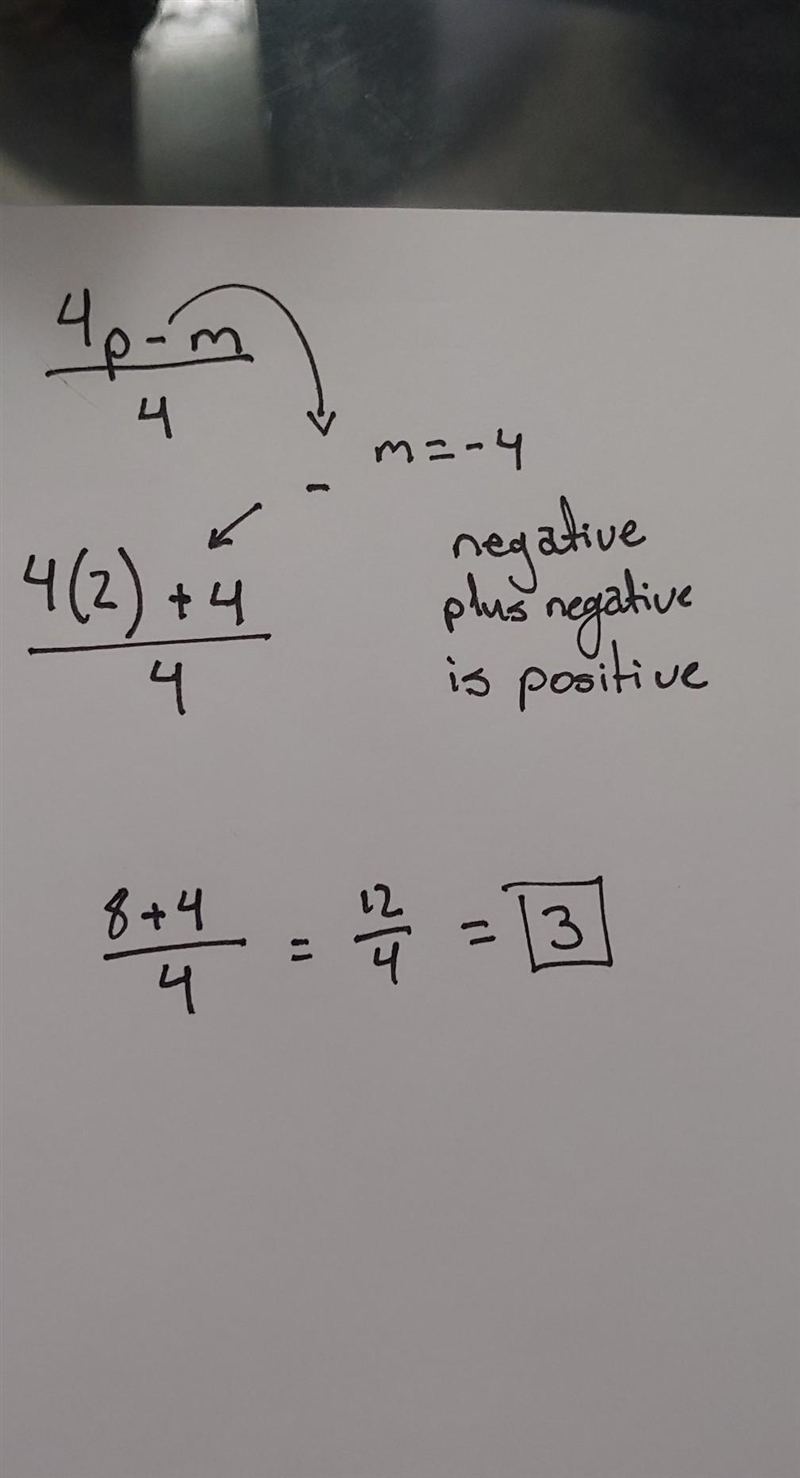 4p - m
4
m = -4
-
4(2) + 4
4
negative
plus negative
is positive
8 + 4
4
= 12
4
= 3